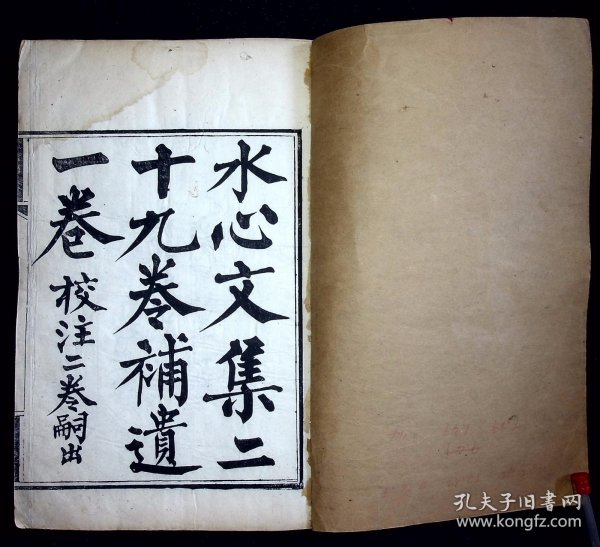 水心文集二
十九卷補遺
一卷校注二卷嗣出
孔夫子旧書网
www.kongfz.com